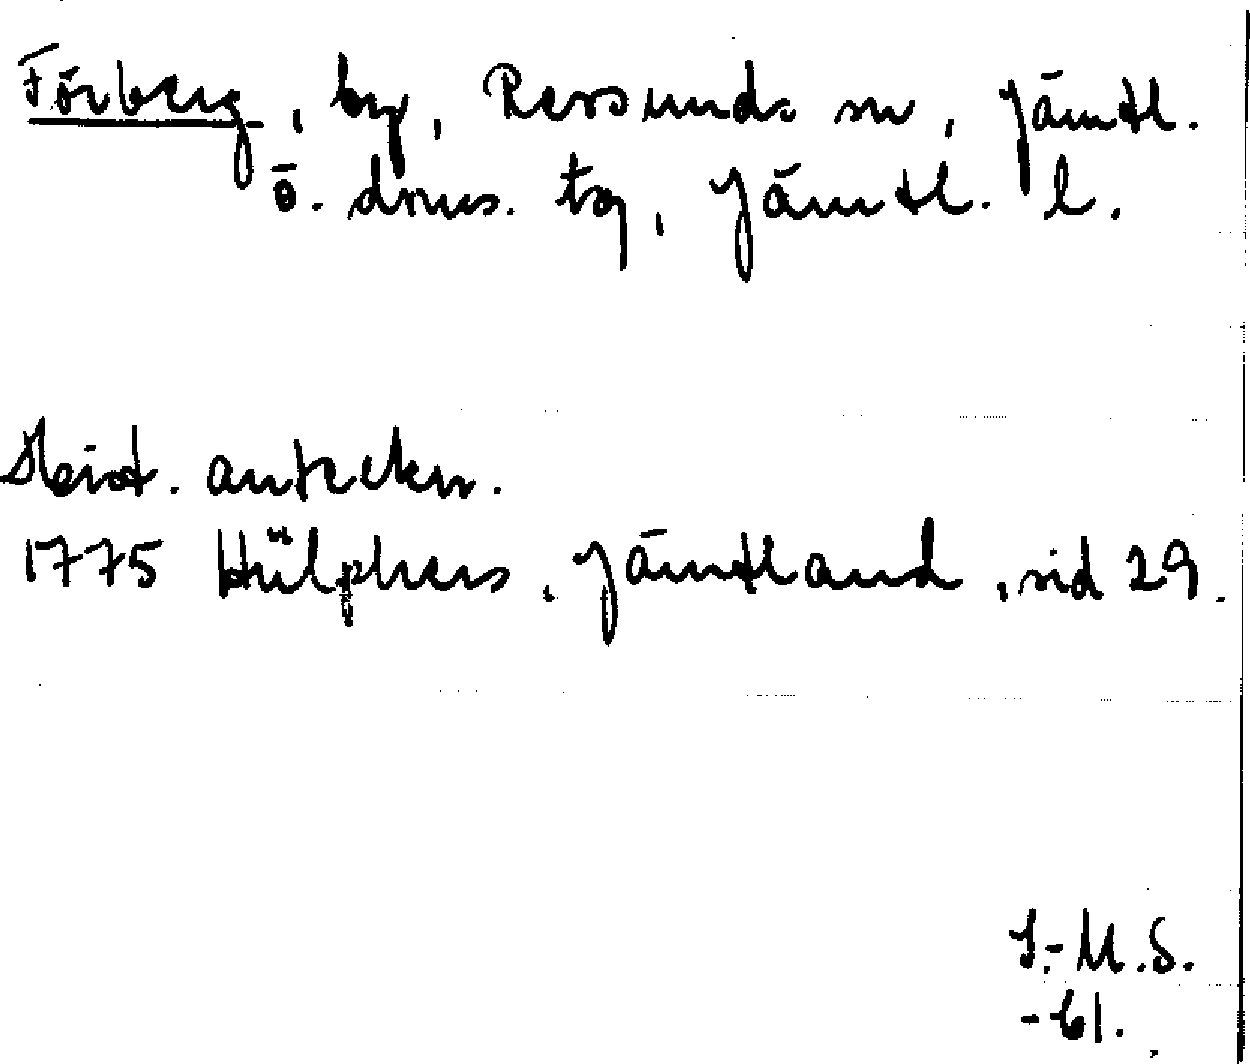 Förberg, by, Revsunds sn, Jämtl.
ö. doms. tg, Jämtl. l.
Hist. anteckn.
1775 Hülphers, Jämtland, sid 29.
I.-M.S.
-61.